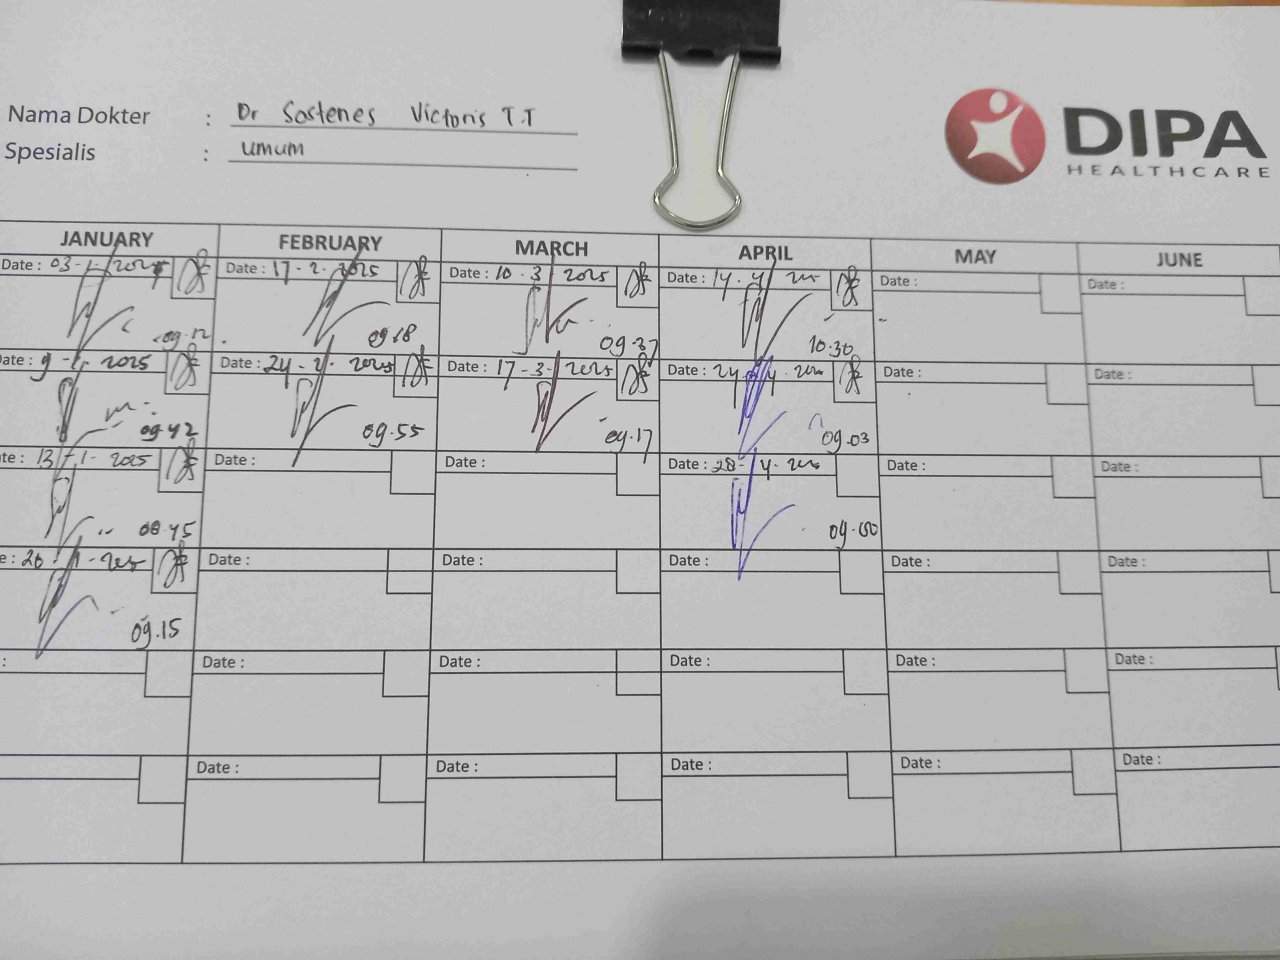 Nama Dokter : Dr Sostenes Victoris T.T
Spesialis : umum
DIPA
HEALTHCARE
JANUARY FEBRUARY MARCH APRIL MAY JUNE
Date : 03-1-2025 Date : 17-2-2025 Date : 10-3-2025 Date : 14-4- Date : Date :
09.12 09.18 09.37 10.30
Date : 9-1-2025 Date : 24-2-2025 Date : 17-3-2025 Date : 24-4- Date : Date :
09.42 09.55 09.17 09.03
te : 13-1-2025 Date : Date : Date : 28-4- Date : Date :
08.45 09.00
e : 20-1- Date : Date : Date : Date : Date :
09.15
: Date : Date : Date : Date : Date :
Date : Date : Date : Date : Date :